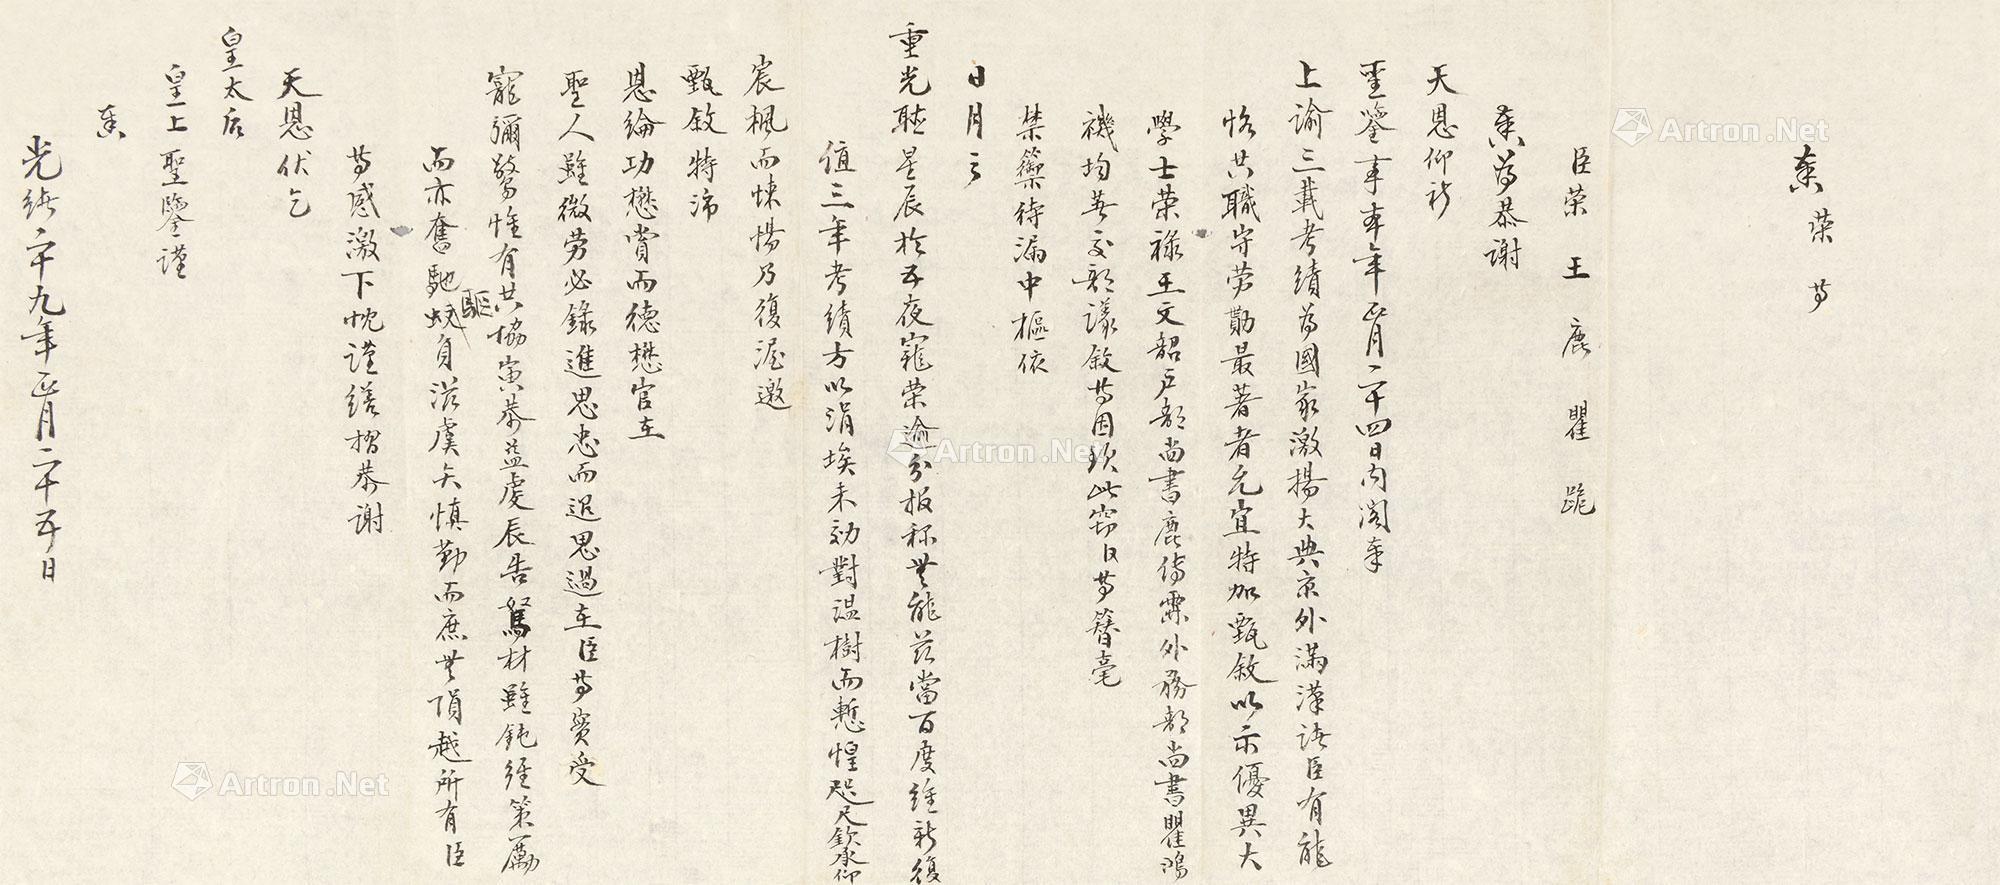 奏 榮 等
臣榮 王 鹿 瞿 跪
奏為恭謝
天恩仰祈
聖鑒事本年正月二十四日內閣奉
上諭三載考績為國家激揚大典京外滿漢諸臣有能
恪共職守勞勩最著者允宜特加甄敘以示優異大
學士榮祿王文韶戶部尚書鹿傳霖外務部尚書瞿鴻
禨均著交部議敘等因欽此竊臣等簪毫
禁籞待漏中樞依
日月之
重光聽星辰於五夜寵榮逾分報稱無能茲當百度維新復
值三年考績方以涓埃未効對溫樹而慙惶咫尺欽承仰
宸楓而悚惕乃復渥邀
甄敘特沛
恩綸功懋賞而德懋官在
聖人雖微勞必錄進思忠而退思過在臣等實受
寵彌驚惟有共協寅恭益虔辰告駑材雖鈍經策勵
而亦奮馳驅蚊負滋虞矢慎勤而庶無隕越所有臣
等感激下忱謹繕摺恭謝
天恩伏乞
皇太后
皇上聖鑒謹
奏
光緒二十九年正月二十五日
Artron.Net
Artron.Net
Artron.Net
Artron.Net
Artron.Net